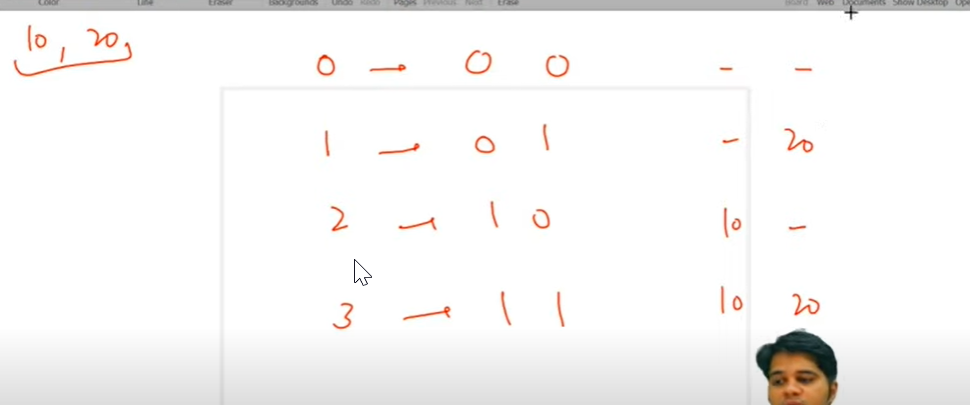 Color Line Eraser Backgrounds Undo Redo Pages Previous Next Erase Board Web Documents Show Desktop
10, 20,
0 → 0 0 - -
1 → 0 1 - 20
2 → 1 0 10 -
3 → 1 1 10 20